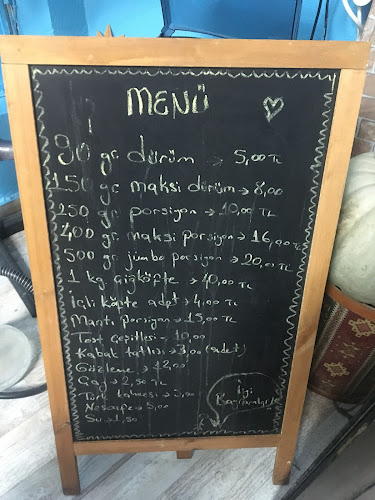 MENÜ
90 gr. dürüm → 5,00 TL
150 gr maksi dürüm → 8,00
250 gr porsiyon → 10,00 TL
400 gr. maksi porsiyon → 16,00 TL
500 gr. jumbo porsiyon → 20,00 TL
1 kg. çiğköfte → 40,00 TL
İçli köfte adet → 4,00 TL
Mantı porsiyon → 15,00 TL
Tost çeşitleri - 10,00
Kabak tatlısı → 3,00 (adet)
Gözleme → 12,00
Çay → 2,50 TL
Türk kahvesi → 5,00
Nescafe → 5,00
Su → 1,50
İyi Bayramlar